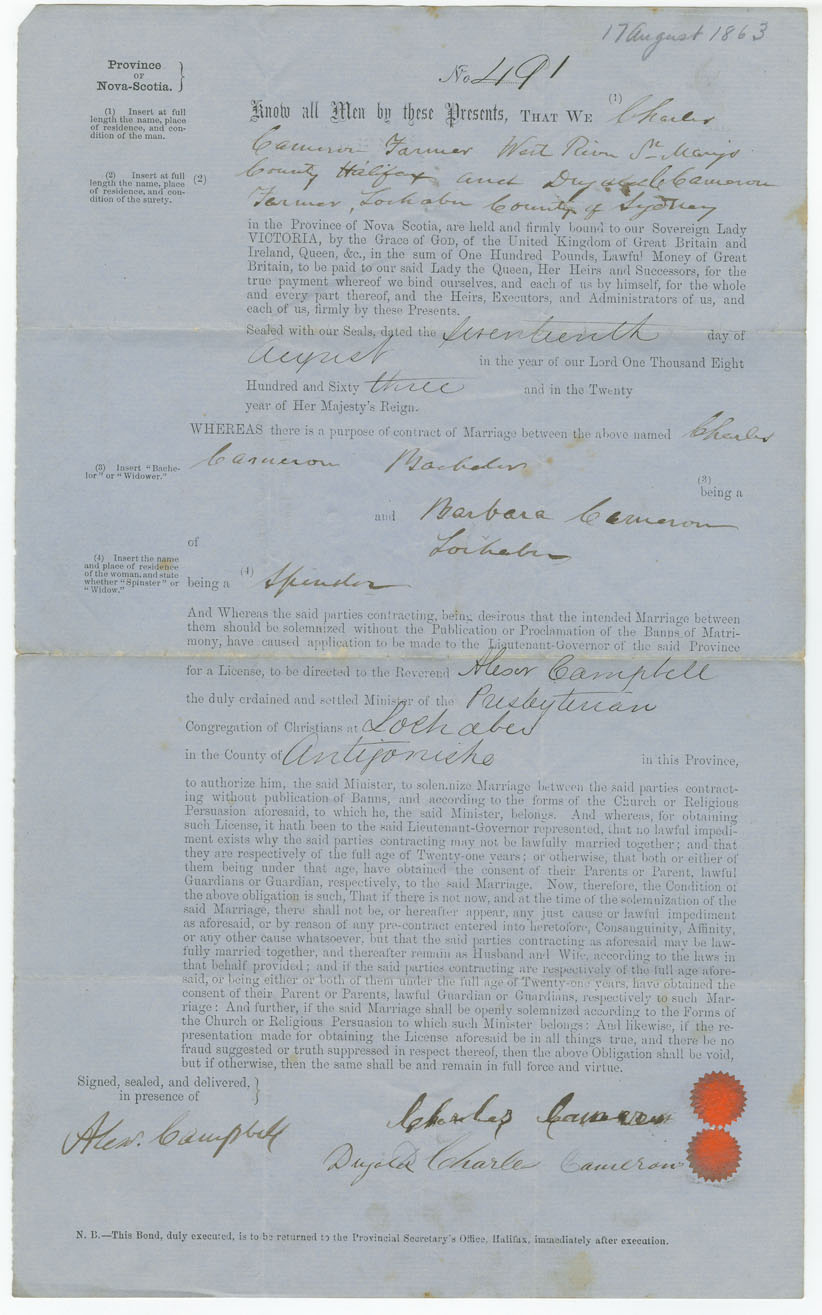 17 August 1863
Province
OF
Nova-Scotia.
No 491
(1) Insert at full
length the name, place
of residence, and con-
dition of the man.
Know all Men by these Presents, THAT WE (1) Charles
Cameron Farmer West River St Marys
(2) Insert at full
length the name, place
of residence, and con-
dition of the surety.
(2) County Halifax and Dugald C Cameron
Farmer, Lochaber County of Sydney
in the Province of Nova Scotia, are held and firmly bound to our Sovereign Lady
VICTORIA, by the Grace of GOD, of the United Kingdom of Great Britain and
Ireland, Queen, &c., in the sum of One Hundred Pounds, Lawful Money of Great
Britain, to be paid to our said Lady the Queen, Her Heirs and Successors, for the
true payment whereof we bind ourselves, and each of us by himself, for the whole
and every part thereof, and the Heirs, Executors, and Administrators of us, and
each of us, firmly by these Presents.
Sealed with our Seals, dated the Seventeenth day of
August in the year of our Lord One Thousand Eight
Hundred and Sixty three and in the Twenty
year of Her Majesty's Reign.
WHEREAS there is a purpose of contract of Marriage between the above named Charles
(3) Insert "Bache-
lor" or "Widower."
Cameron Bachelor
(3)
being a
and Barbara Cameron
of Lochaber
(4) Insert the name
and place of residence
of the woman, and state
whether "Spinster" or
"Widow."
being a (4) Spinster
And Whereas the said parties contracting, being desirous that the intended Marriage between
them should be solemnized without the Publication or Proclamation of the Banns of Matri-
mony, have caused application to be made to the Lieutenant-Governor of the said Province
for a License, to be directed to the Reverend Alexr Campbell
the duly ordained and settled Minister of the Presbyterian
Congregation of Christians at Lochaber
in the County of Antigonishe in this Province,
to authorize him, the said Minister, to solemnize Marriage between the said parties contract-
ing without publication of Banns, and according to the forms of the Church or Religious
Persuasion aforesaid, to which he, the said Minister, belongs. And whereas, for obtaining
such License, it hath been to the said Lieutenant-Governor represented, that no lawful impedi-
ment exists why the said parties contracting may not be lawfully married together; and that
they are respectively of the full age of Twenty-one years; or otherwise, that both or either of
them being under that age, have obtained the consent of their Parents or Parent, lawful
Guardians or Guardian, respectively, to the said Marriage. Now, therefore, the Condition of
the above obligation is such, That if there is not now, and at the time of the solemnization of the
said Marriage, there shall not be, or hereafter appear, any just cause or lawful impediment
as aforesaid, or by reason of any pre-contract entered into heretofore, Consanguinity, Affinity,
or any other cause whatsoever, but that the said parties contracting as aforesaid may be law-
fully married together, and thereafter remain as Husband and Wife, according to the laws in
that behalf provided; and if the said parties contracting are respectively of the full age afore-
said, or being either or both of them under the full age of Twenty-one years, have obtained the
consent of their Parent or Parents, lawful Guardian or Guardians, respectively to such Mar-
riage: And further, if the said Marriage shall be openly solemnized according to the Forms of
the Church or Religious Persuasion to which such Minister belongs: And likewise, if the re-
presentation made for obtaining the License aforesaid be in all things true, and there be no
fraud suggested or truth suppressed in respect thereof, then the above Obligation shall be void,
but if otherwise, then the same shall be and remain in full force and virtue.
Signed, sealed, and delivered,
in presence of
Alexr. Campbell
Charles Cameron
Dugald Charles Cameron
N. B.—This Bond, duly executed, is to be returned to the Provincial Secretary's Office, Halifax, immediately after execution.